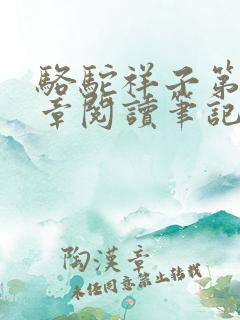 駱駝祥子第
章閱讀筆記
陶漢章
未經同意禁止轉載